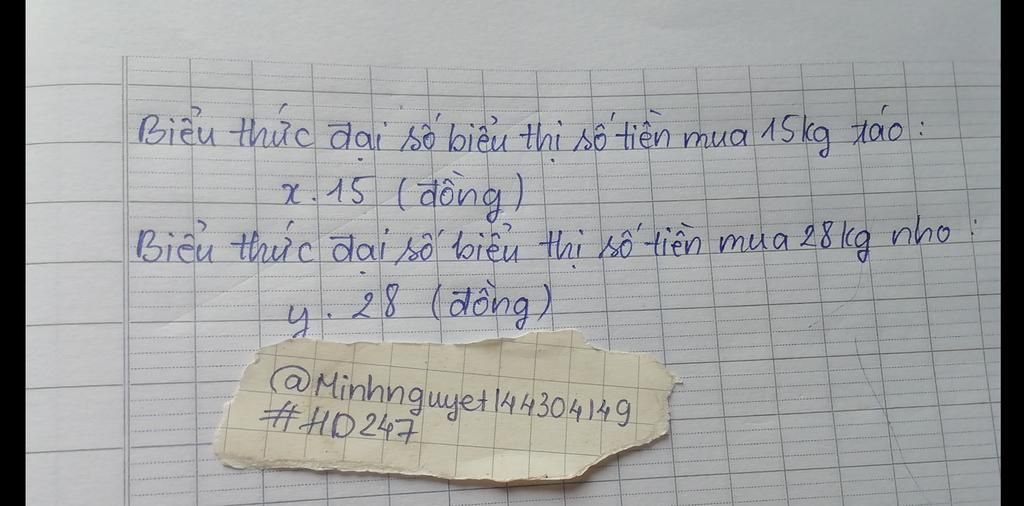 Biểu thức đại số biểu thị số tiền mua 15kg táo:
x.15 (đồng)
Biểu thức đại số biểu thị số tiền mua 28kg nho:
y.28 (đồng)
@Minhnguyet144304149
#HD247